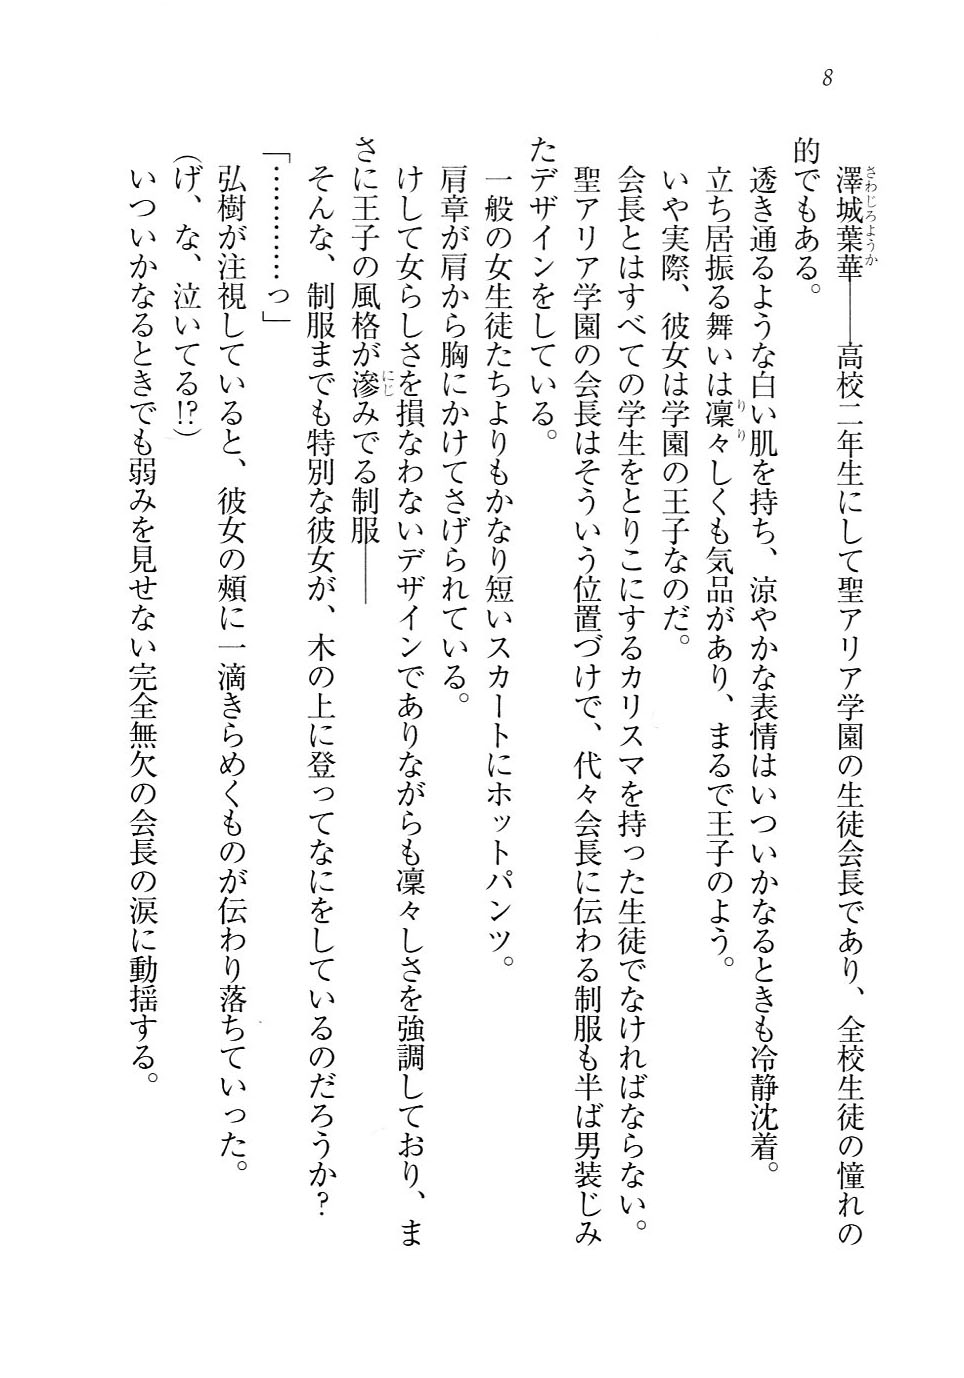 8
澤城葉華――高校二年生にして聖アリア学園の生徒会長であり、全校生徒の憧れの
的でもある。
透き通るような白い肌を持ち、涼やかな表情はいついかなるときも冷静沈着。
立ち居振る舞いは凜々しくも気品があり、まるで王子のよう。
いや実際、彼女は学園の王子なのだ。
会長とはすべての学生をとりこにするカリスマを持った生徒でなければならない。
聖アリア学園の会長はそういう位置づけで、代々会長に伝わる制服も半ば男装じみ
たデザインをしている。
一般の女生徒たちよりもかなり短いスカートにホットパンツ。
肩章が肩から胸にかけてさげられている。
けして女らしさを損なわないデザインでありながらも凜々しさを強調しており、ま
さに王子の風格が滲みでる制服――
そんな、制服までも特別な彼女が、木の上に登ってなにをしているのだろうか？
「…………っ」
弘樹が注視していると、彼女の頰に一滴きらめくものが伝わり落ちていった。
（げ、な、泣いてる!?）
いついかなるときでも弱みを見せない完全無欠の会長の涙に動揺する。
さわじろようか
りり
にじ